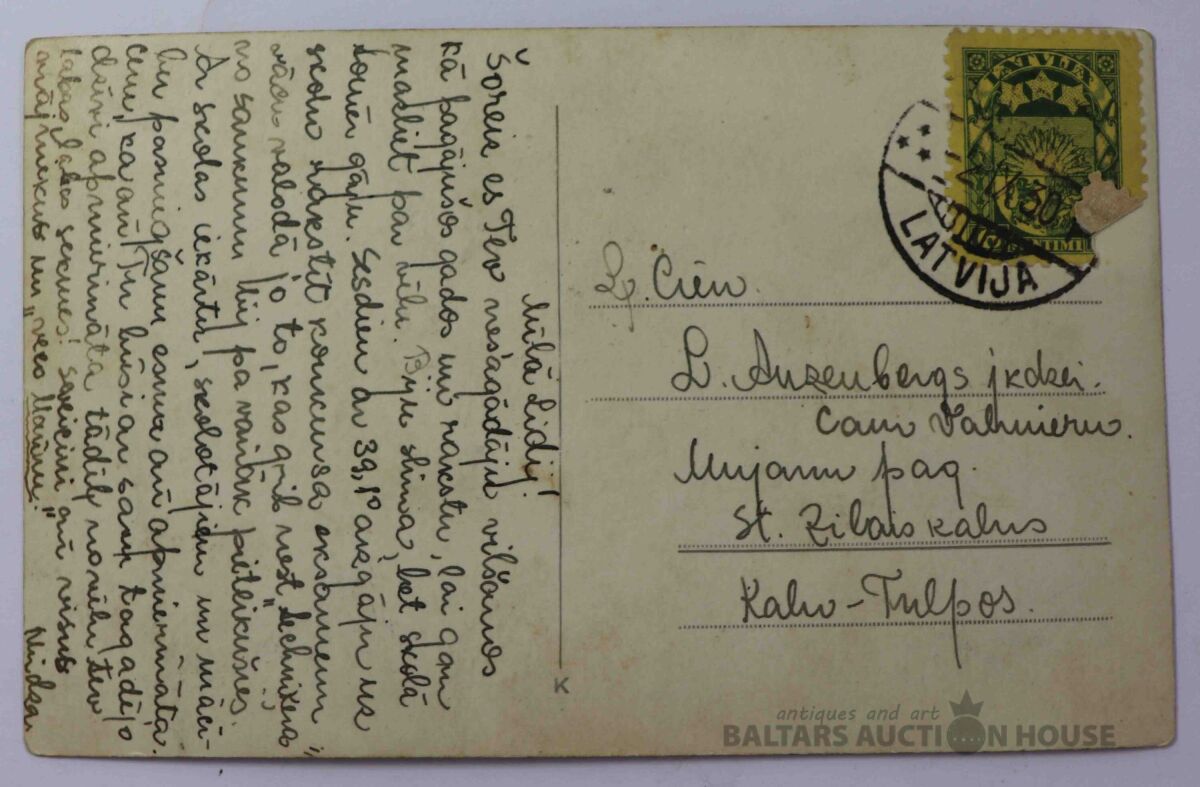 Mīlā Lidij!
Šoreiz es Tev nesagādāju vilšanos
kā pagājušos gados un rakstu, lai gan
mazliet par vēlu. Biju slima, bet skolā
tomēr gāju. Sesdien ar 39,1° aizgāju uz
skolu rakstīt konkursa eksamenu
vācu valodā jo to, kas grib nest „technikera”
no saukumu bij pa vairāk pieteikušies.
Ar skolas iekārtu, skolotājiem un māci-
bu pasniegšanu esmu arī apmierināta.
Ceru, ka arī Tu būsi ar savu tagadējo
dzīvi apmierināta tādēļ novēlu tev
labas, labas sekmes! Sveicini arī visus
mājniekus un „veco Mariņu”.
Mirdza.
LATVIJA
SANTIMI
2 IX 30
LATVIJA
L. Cien.
L. Anzenbergs jkdzei.
Caur Valmieru.
Mujanu pag.
St. Zilaiskalns
Kalv-Tulpos.
K
antiques and art
BALTARS AUCTION HOUSE